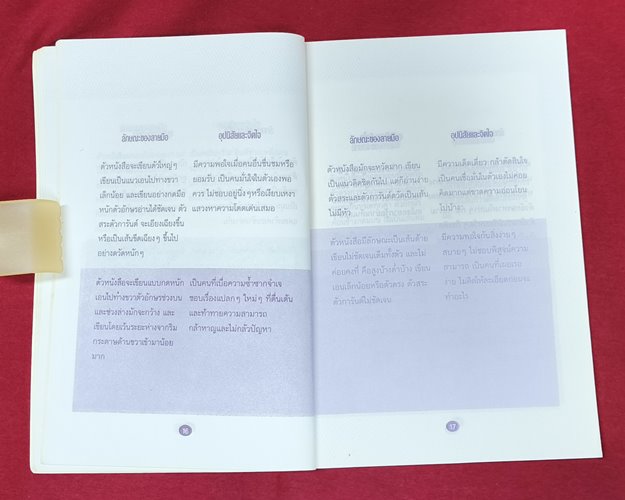 ลักษณะของลายมือ
อุปนิสัยและจิตใจ
ตัวหนังสือจะเขียนตัวใหญ่ๆ
เขียนเป็นแนวเอนไปทางขวา
เล็กน้อย และเขียนอย่างกดมือ
หนักตัวอักษรอ่านได้ชัดเจน ตัว
สระตัวการันต์ จะเอียงเฉียงขึ้น
หรือเป็นเส้นขีดเฉียงๆ ขึ้นไป
อย่างตวัดหนักๆ
มีความพอใจเมื่อคนอื่นชื่นชมหรือ
ยอมรับ เป็นคนมั่นใจในตัวเองพอ
ควร ไม่ชอบอยู่นิ่งๆหรือเงียบเหงา
แสวงหาความโดดเด่นเสมอ
ตัวหนังสือจะเขียนแบบกดหนัก
เอนไปทางขวาตัวอักษรช่วงบน
และช่วงล่างมักจะกว้าง และ
เขียนโดยเว้นระยะห่างจากริม
กระดาษด้านขวาเข้ามาน้อย
มาก
เป็นคนที่เบื่อความซ้ำซากจำเจ
ชอบเรื่องแปลกๆ ใหม่ๆ ที่ตื่นเต้น
และท้าทายความสามารถ
กล้าหาญและไม่กลัวปัญหา
16
ลักษณะของลายมือ
อุปนิสัยและจิตใจ
ตัวหนังสือมักจะหวัดมาก เขียน
เป็นแนวติดชิดกันไป แต่ก็อ่านง่าย
ตัวสระและตัวการันต์ตวัดเป็นเส้น
ไม่มีหัว
มีความเด็ดเดี่ยว กล้าตัดสินใจ
เป็นคนเชื่อมั่นในตัวเองไม่ค่อย
คิดมากแต่ขาดความอ่อนโยน
ไปบ้าง
ตัวหนังสือมีลักษณะเป็นเส้นด้าย
เขียนไม่ชัดเจนเต็มทั้งตัว และไม่
ค่อยคงที่ คือสูงบ้างต่ำบ้าง เขียน
เอนเล็กน้อยหรือตัวตรง ตัวสระ
ตัวการันต์ไม่ชัดเจน
มีความพอใจกับสิ่งง่ายๆ
สบายๆ ไม่ชอบพิสูจน์ความ
สามารถ เป็นคนที่เผอเรอ
ง่าย ไม่คิดให้ละเอียดก่อนจะ
ทำอะไร
17